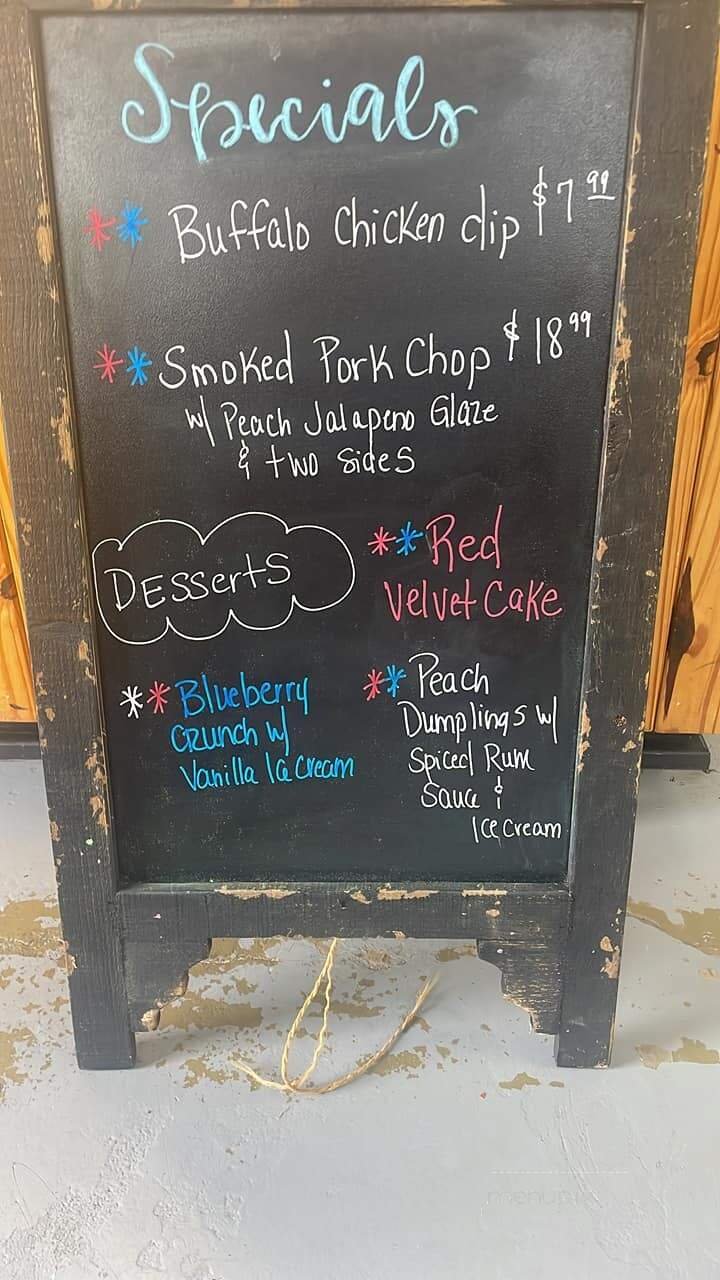 Specials
** Buffalo Chicken dip $7.99
** Smoked Pork Chop $18.99
w/ Peach Jalapeno Glaze
& two sides
Desserts
** Red
Velvet Cake
** Blueberry
Crunch w/
Vanilla Ice Cream
** Peach
Dumplings w/
Spiced Rum
Sauce &
Ice Cream